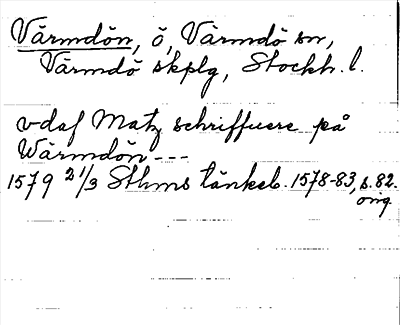 Värmdön, ö, Värmdö sn,
Värmdö skplg, Stockh. l.
vdaf Matz schriffuere på
Wärmdön ---
1579 21/3 Sthms tänkeb. 1578-83, s. 82.
orig.